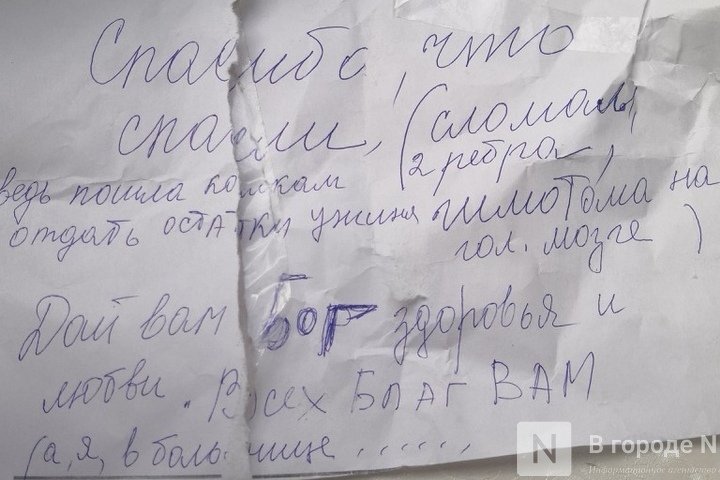 Спасибо, что
спасли, (сломали,
2 ребра,
ведь пошла кошкам
отдать остатки ужина гимотома на
гол. мозге )
Дай вам Бог здоровья и
любви. Всех Благ ВАМ
(а, я, в больнице ......
В городе N
Информационное агентство